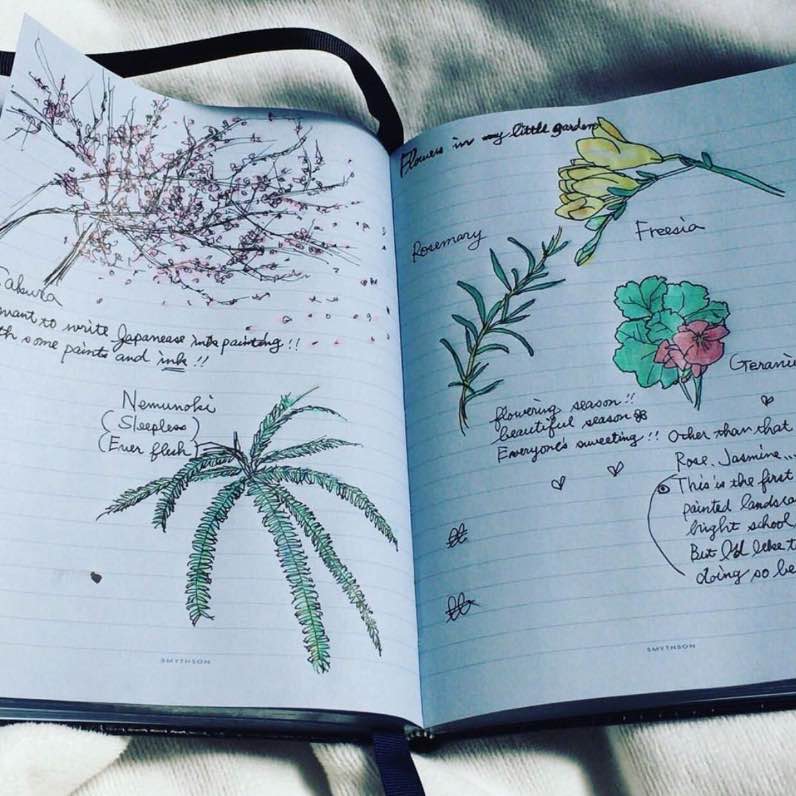 Sakura
want to write Japanease ink painting !!
th some paints and ink !!
Nemunoki
(Sleepless)
(Ever flesh)
SMYTHSON
Flowers in my little garden
Freesia
Rosemary
Geraniu
flowering season !!
beautiful season
Everyone's sweeting !! Other than that
Rose, Jasmine...
This is the first
painted landsca
hight school,
But I'd like t
doing so be
SMYTHSON